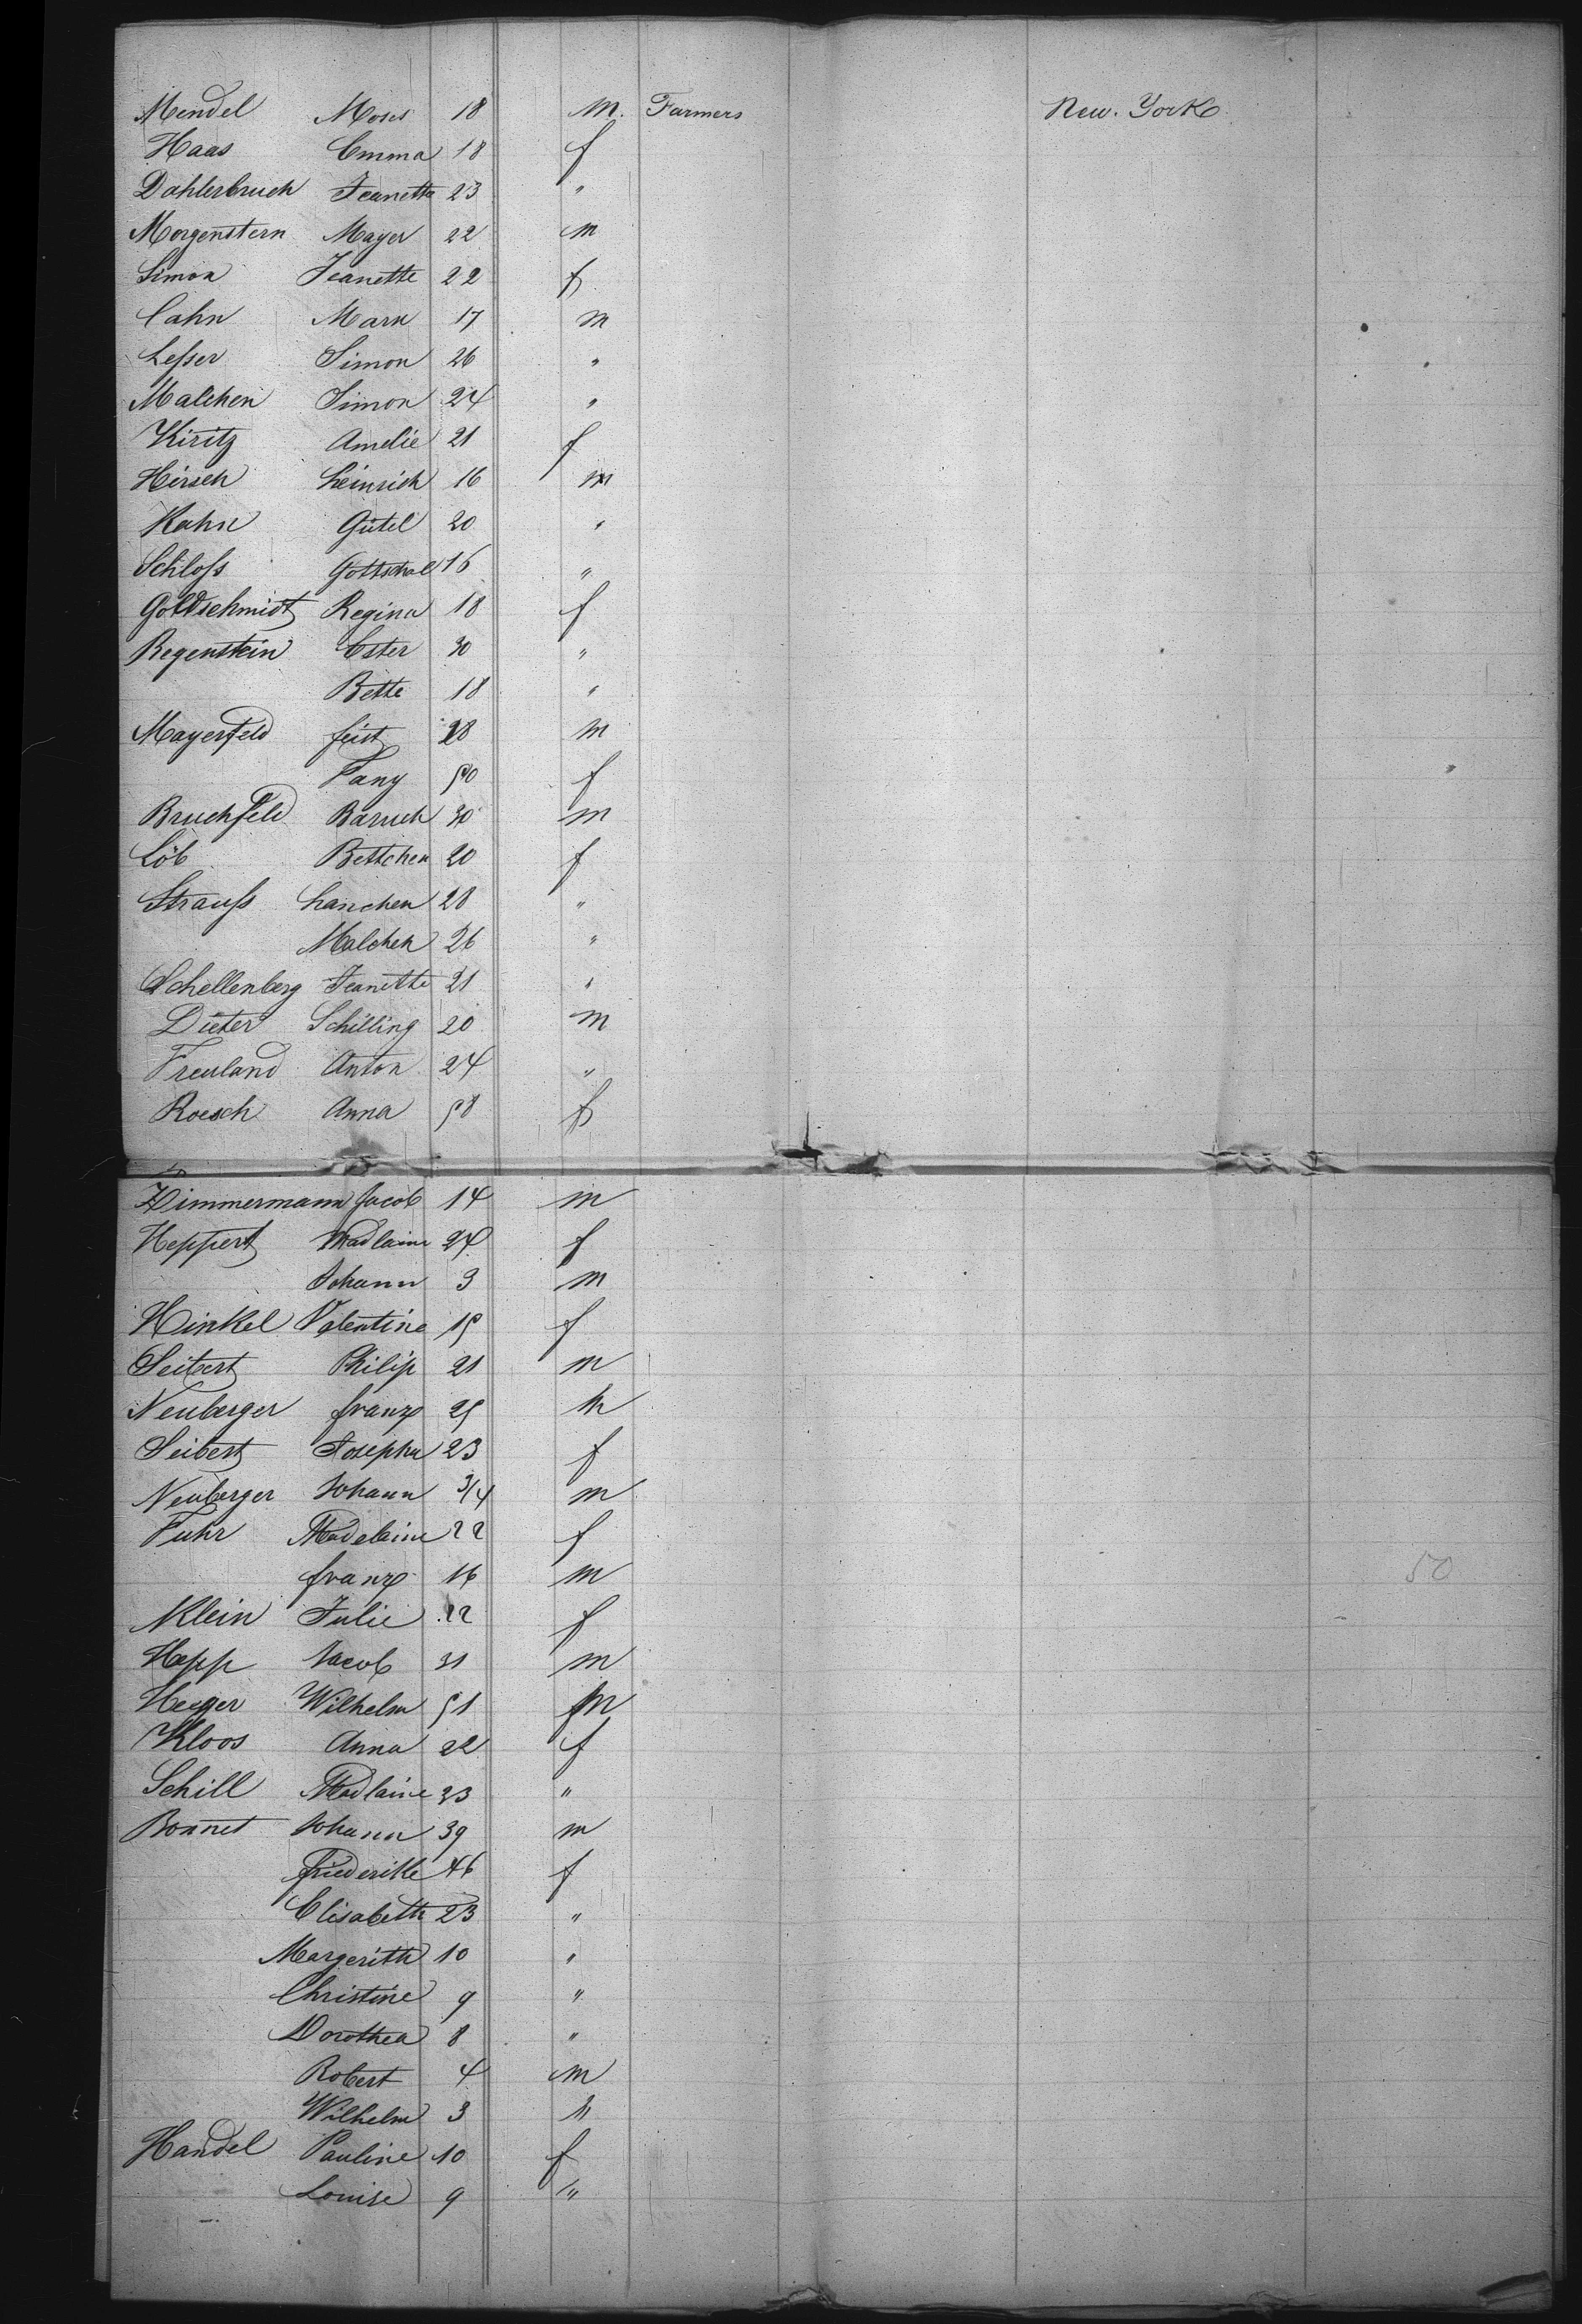 Mendel Moses 18 m. Farmers New. York
Haas Emma 18 f
Dahlerbruch Jeanette 23 "
Morgenstern Mayer 22 m
Simon Jeanette 22 f
Cahn Marx 17 m
Leſser Simon 26 "
Malchen Simon 24 "
Kiritz Amelie 21 f
Hirsch Heinrich 16 m
Kahn Gütel 20 "
Schloſs Gottschal 16 "
Goldschmidt Regina 18 f
Regenstein Ester 30 "
Bette 18 "
Mayerfeld feist 28 m
Fany 50 f
Bruchfeld Baruch 30 m
Löb Bettchen 20 f
Strauſs Hanchen 28 "
Malchen 26 "
Schellenberg Jeanette 21 "
Dieter Schilling 20 m
Freuland Anton 24 "
Roesch Anna 58 f
Zimmermann Jacob 14 m
Heppert Madlaine 24 f
Johann 3 m
Hinkel Valentine 15 f
Seibert Philip 21 m
Neuberger franz 25 m
Seibert Josepha 23 f
Neuberger Johann 3/4 m
Fuhr Madelaine 22 f
franz 16 m
Klein Julie 22 f
Hepp Jacob 31 m
Heger Wilhelm 51 m
Kloos Anna 22 f
Schill Madlaine 23 "
Bonnet Johann 39 m
Friederike 46 f
Elisabeth 23 "
Margerith 10 "
Christine 9 "
Dorothea 8 "
Robert 4 m
Wilhelm 3 "
Handel Pauline 10 f
Louise 9 "
50